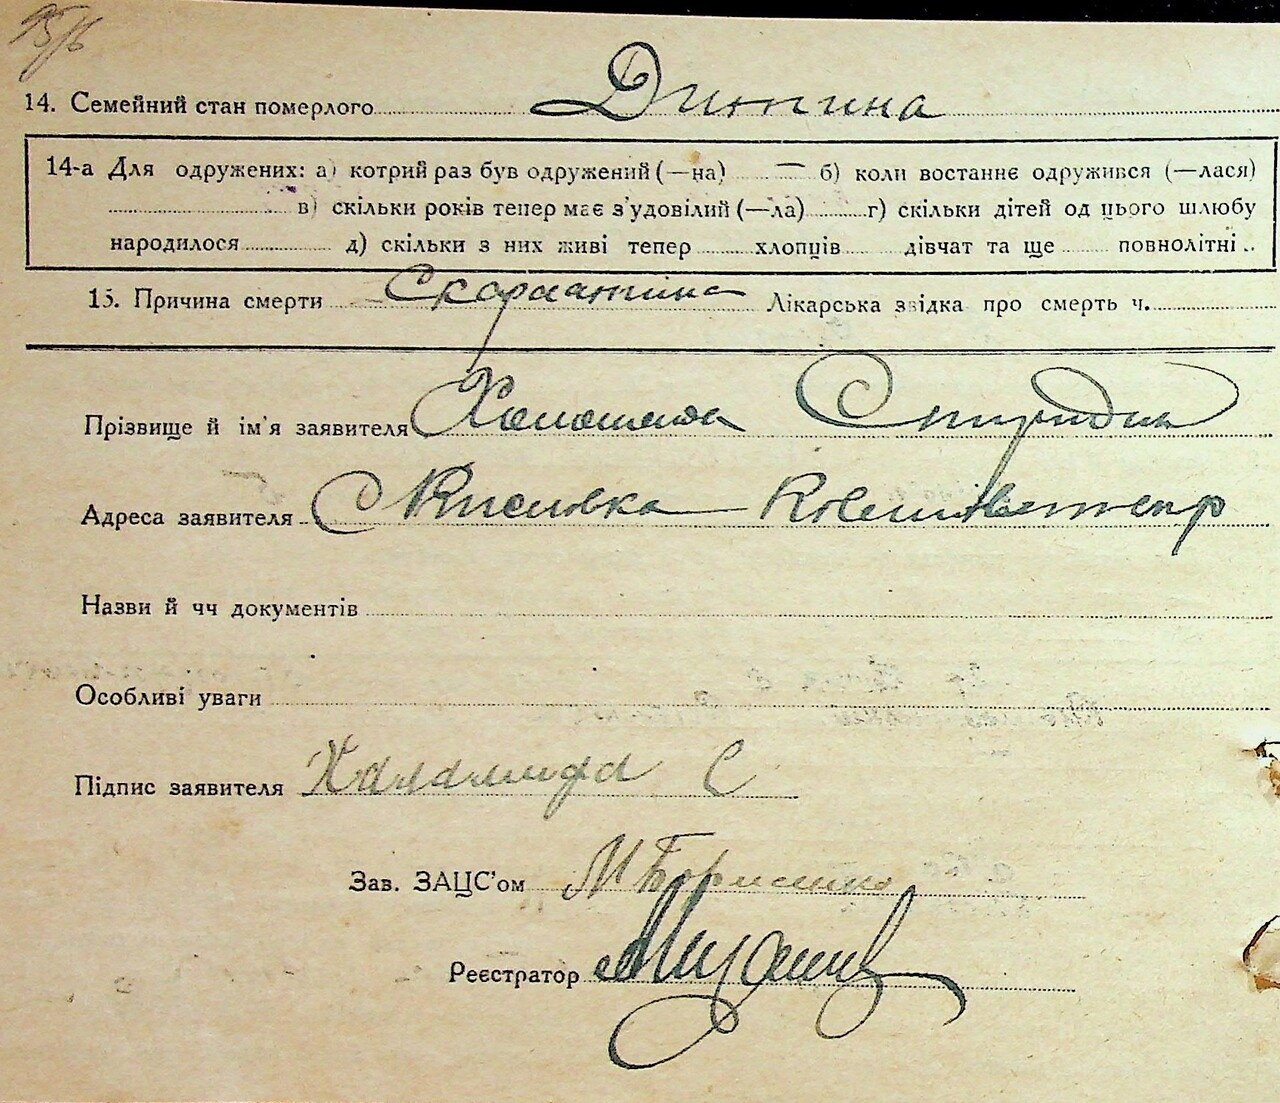 14. Семейний стан померлого Дитина
14-а Для одружених: а) котрий раз був одружений (—на) — б) коли востаннє одружився (—лася)
в) скільки років тепер має з'удовілий (—ла) г) скільки дітей од цього шлюбу
народилося д) скільки з них живі тепер хлопців дівчат та ще повнолітні
15. Причина смерти Скарлатина Лікарська звідка про смерть ч.
Прізвище й ім'я заявителя
Адреса заявителя Кисловка
Назви й чч документів
Особливі уваги
Підпис заявителя С
Зав. ЗАЦС'ом М Борисенко
Реєстратор